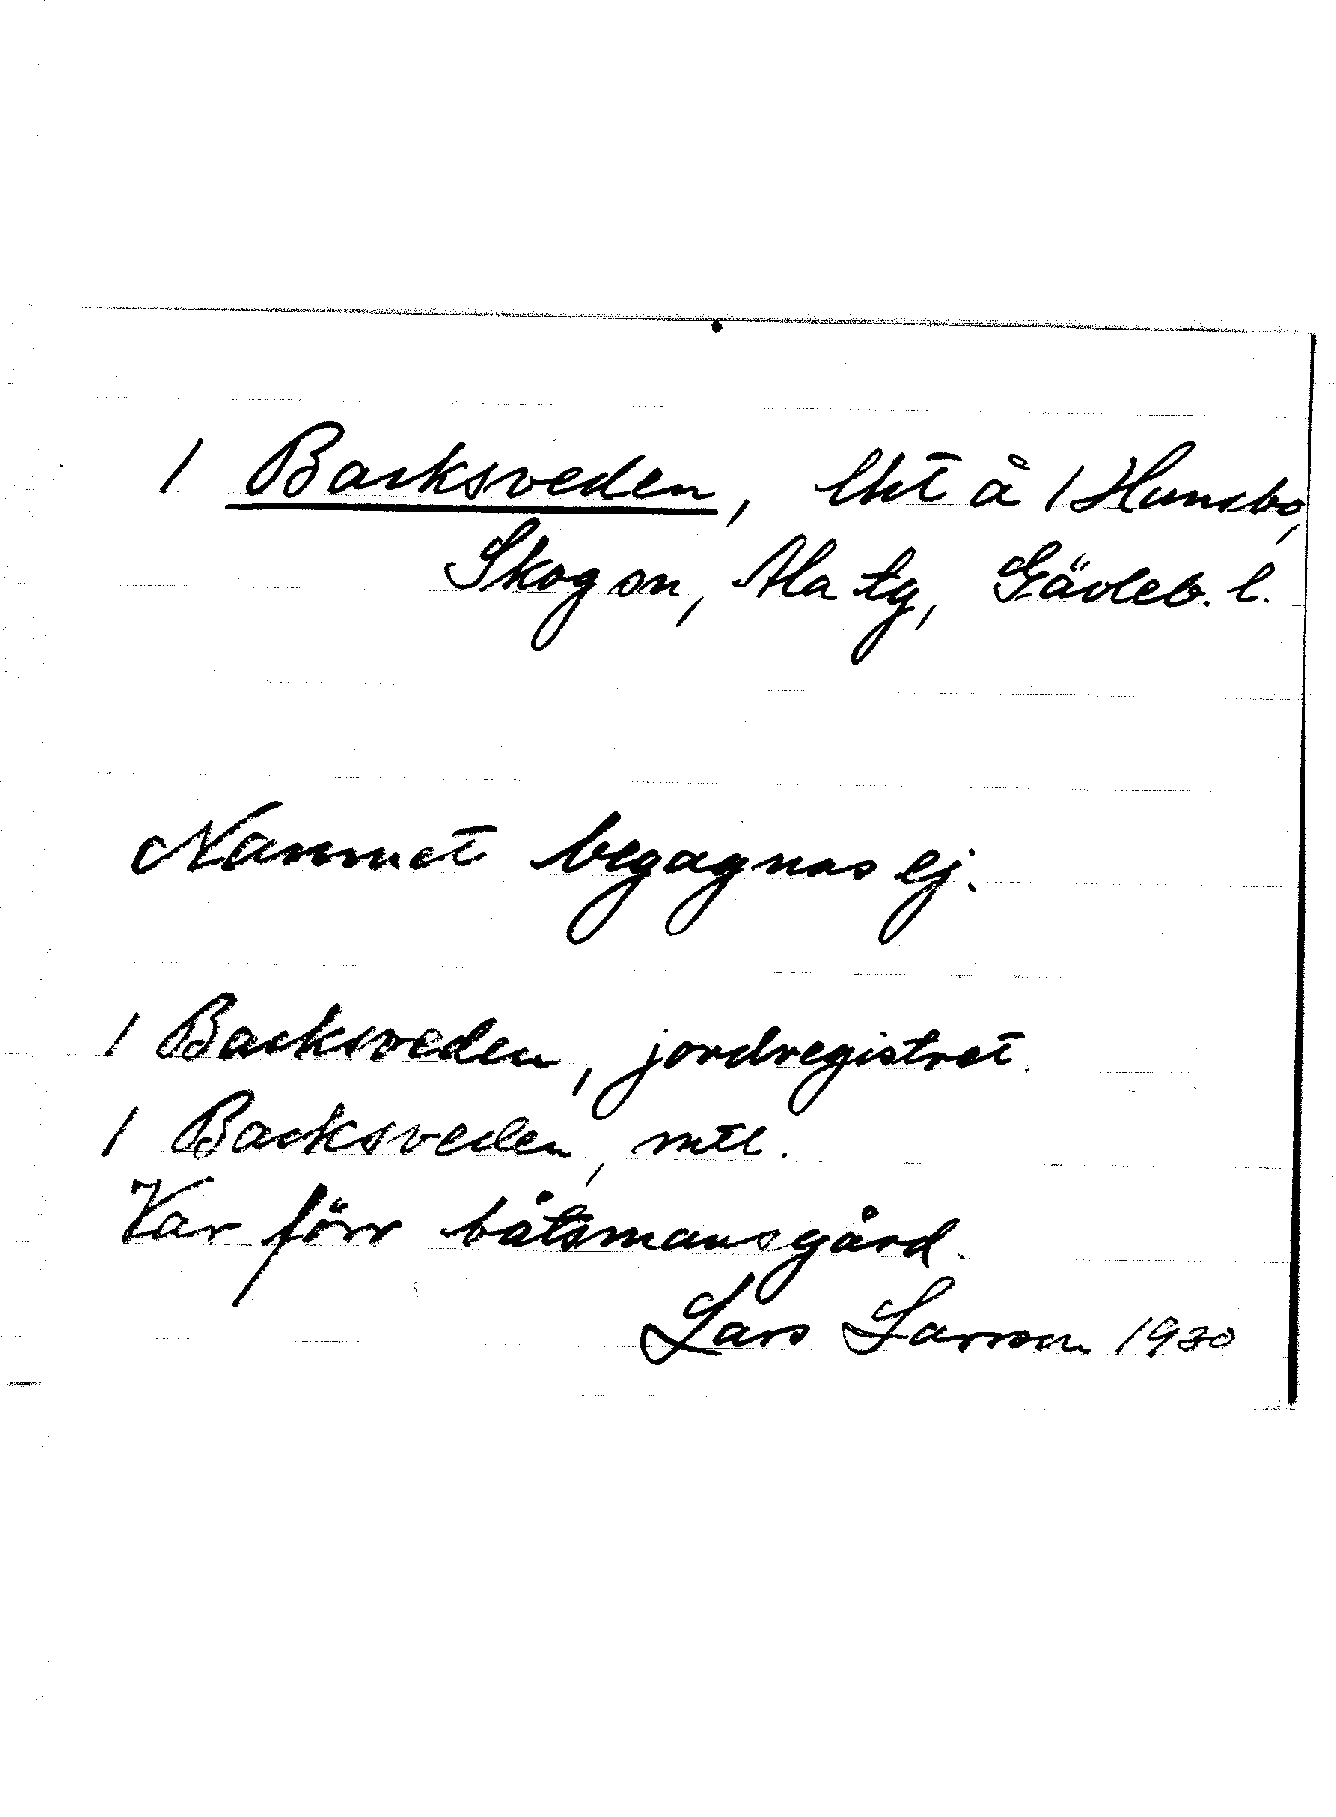 / Backsveden, lht å / Hunsbo,
Skog sn, Ala tg, Gävleb. l.
Namnet begagnas ej.
/ Backsveden, jordregistret.
/ Backsveden, mtl.
Var förr båtsmansgård.
Lars Larson 1930